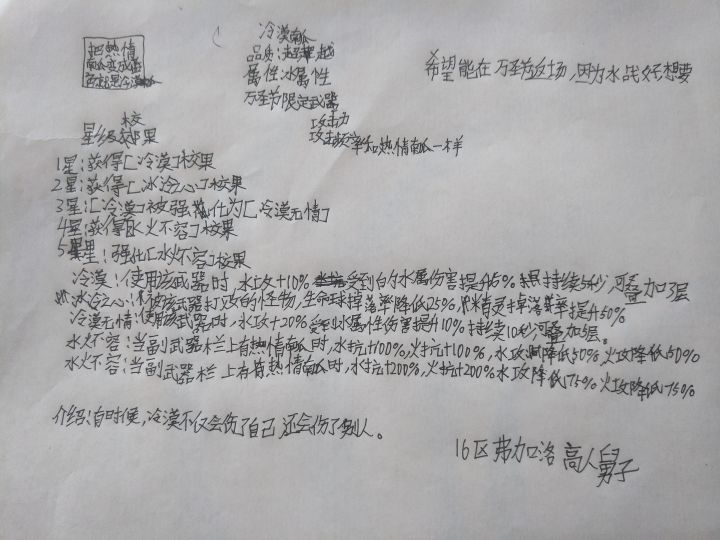 把热情
南瓜变成蓝
色就是冷漠南瓜
冷漠南瓜
品质:超越
属性冰属性
万圣节限定武器
攻击力
攻击频率和热情南瓜一样
希望能在万圣节返场,因为水战好想要
星级校果
1星:获得[冷漠]校果
2星:获得[冰冷之心]校果
3星:[冷漠]被强化为[冷漠无情]
4星:获得[水火不容]校果
5星:强化[水火不容]校果
冷漠:使用该武器时,水攻+10% 受到的水属伤害提升5% 持续5秒 可叠加3层
冰冷之心:被该武器打败的怪物,生命球掉落率降低25%,精灵掉落率提升50%
冷漠无情:使用该武器时,水攻+20% 受到水属性伤害提升10% 持续10秒可叠加5层。
水火不容:当副武器栏上有热情南瓜时,水抗+100%,火抗+100%,水攻降低50% 火攻降低50%
水火不容:当副武器栏上有热情南瓜时,水抗+200%,火抗+200%水攻降低75% 火攻降低75%
介绍:有时候,冷漠不仅会伤了自己 还会伤了别人。
16区 弗加洛 高人舅子